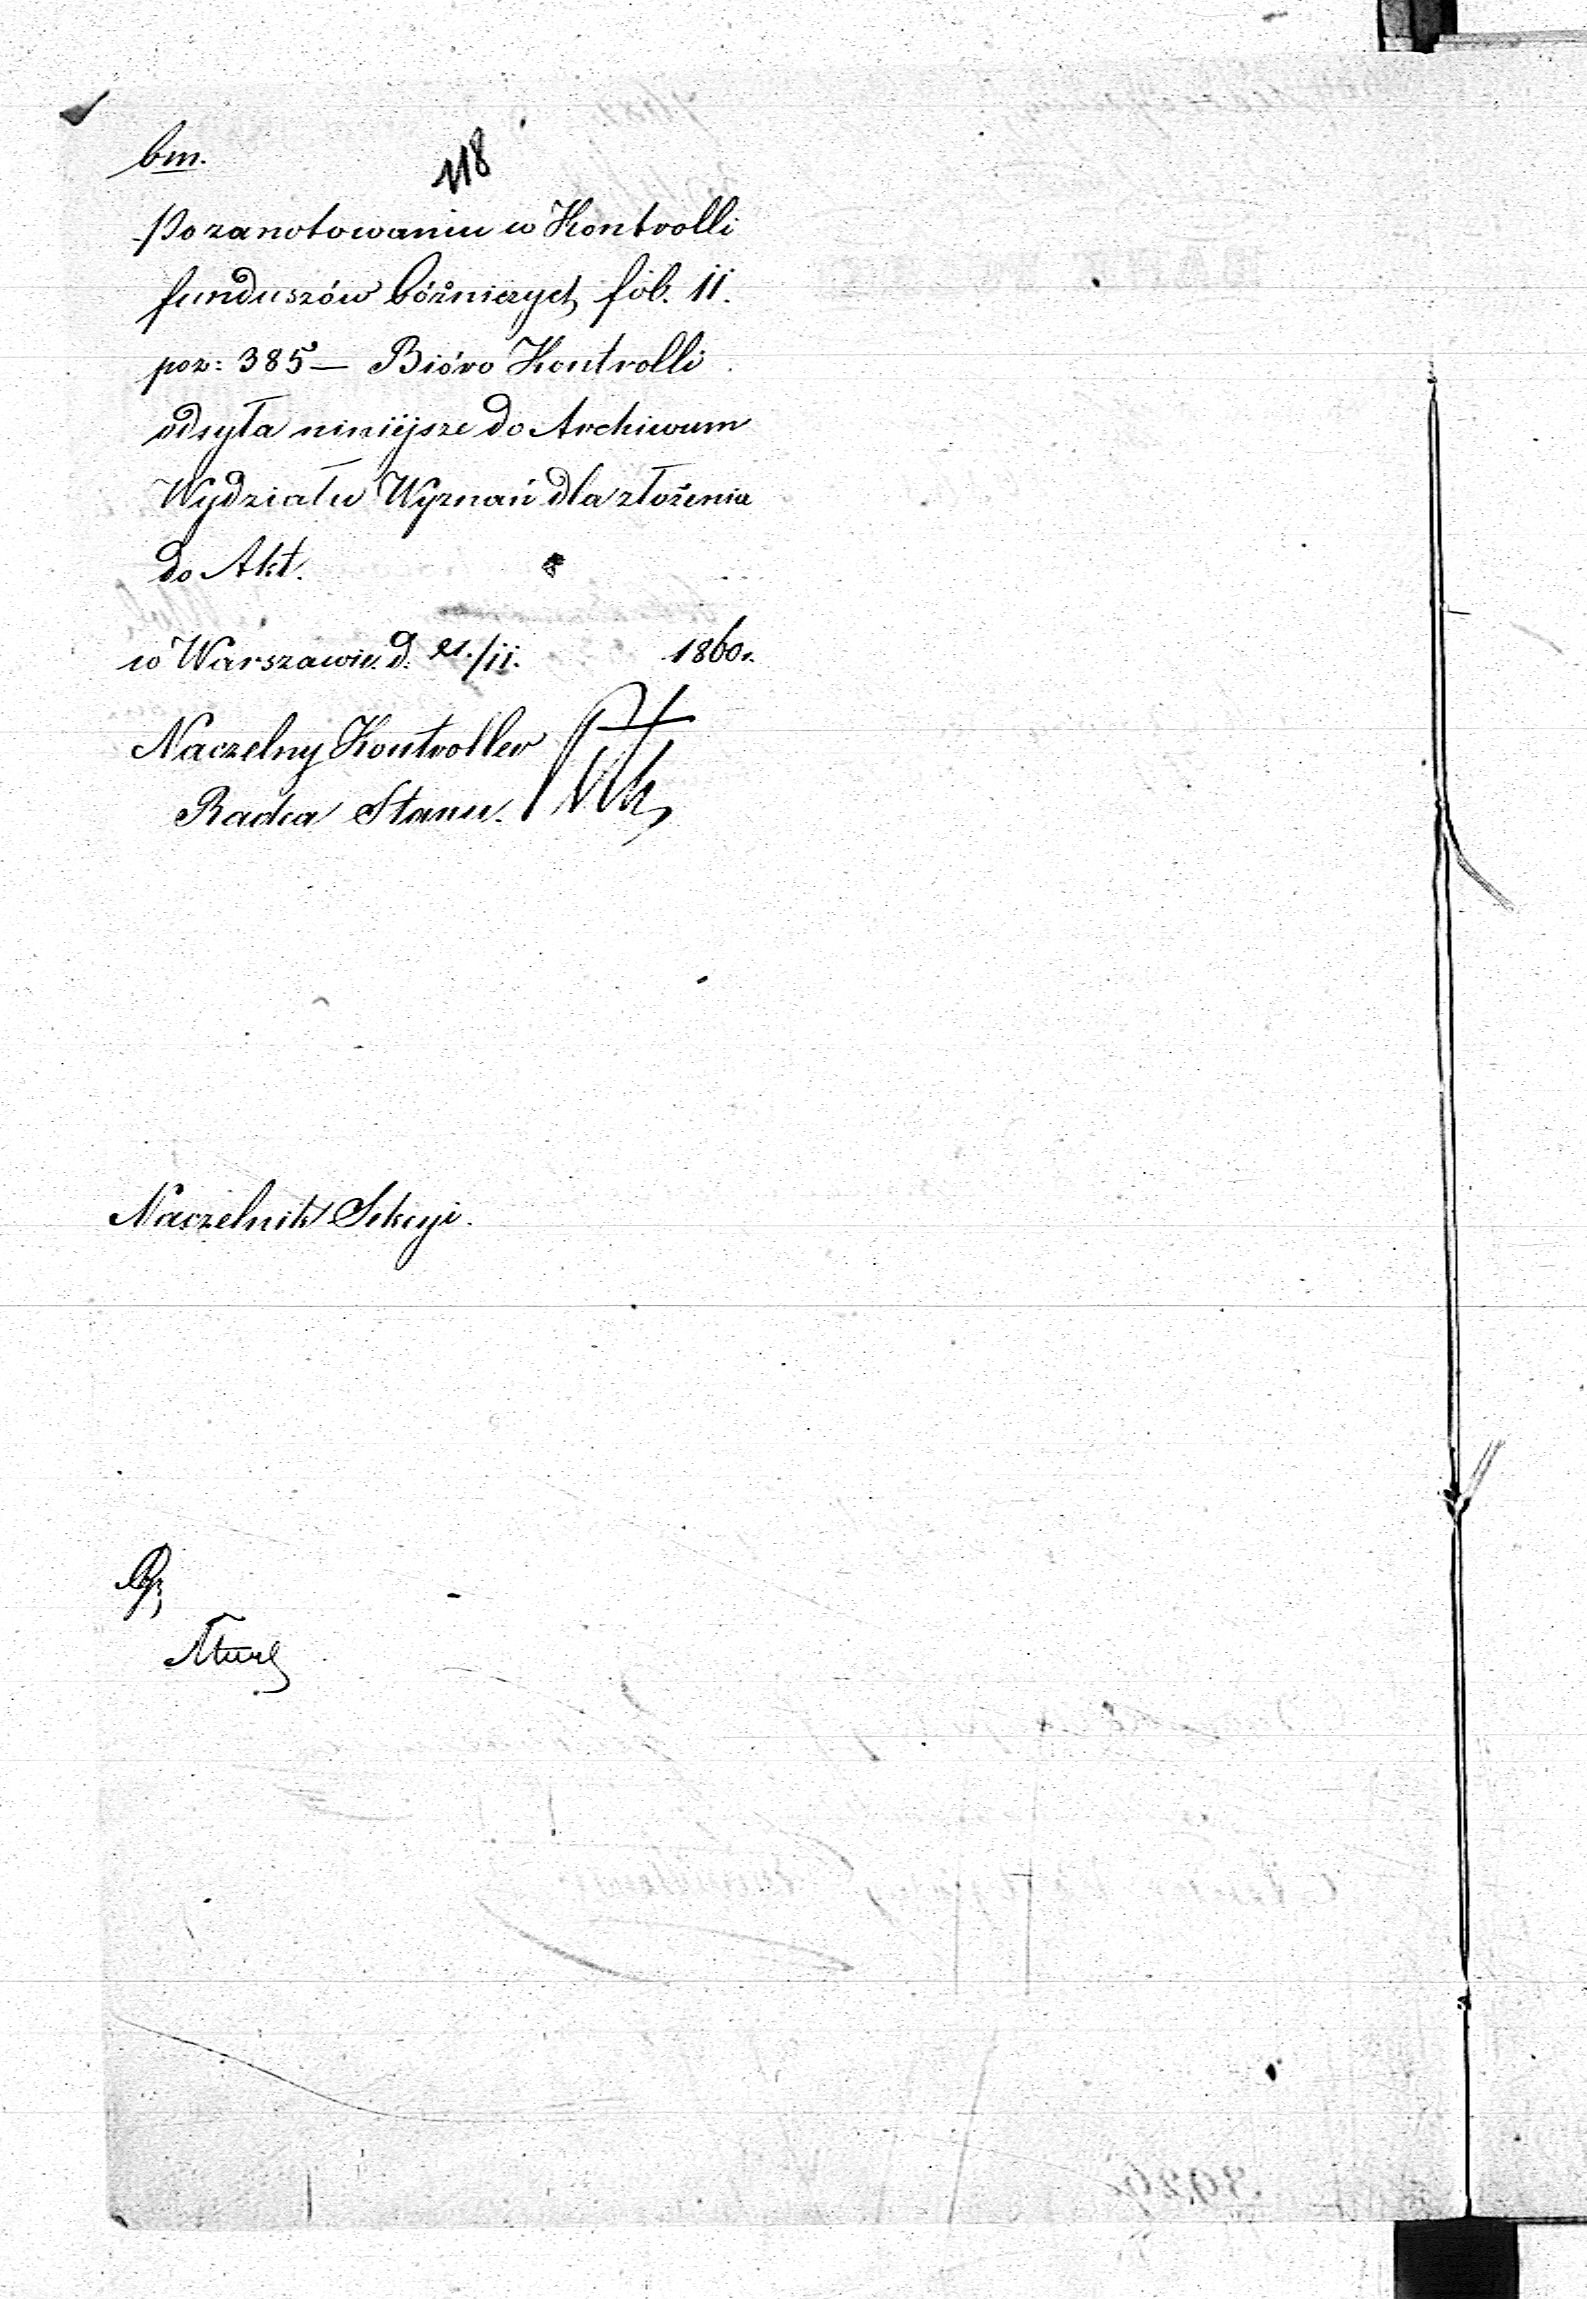 bm.
118
Po zanotowaniu w Kontrolli
funduszów bóźniczych fol. 11.
poz: 385 — Bióro Kontrolli
odsyła niniéjsze do Archiwum
Wydziału Wyznań dla złożenia
do Akt.
w Warszawie d. 21./11. 1860r.
Naczelny Kontroller
Radca Stanu.
Naczelnik Sekcyi.